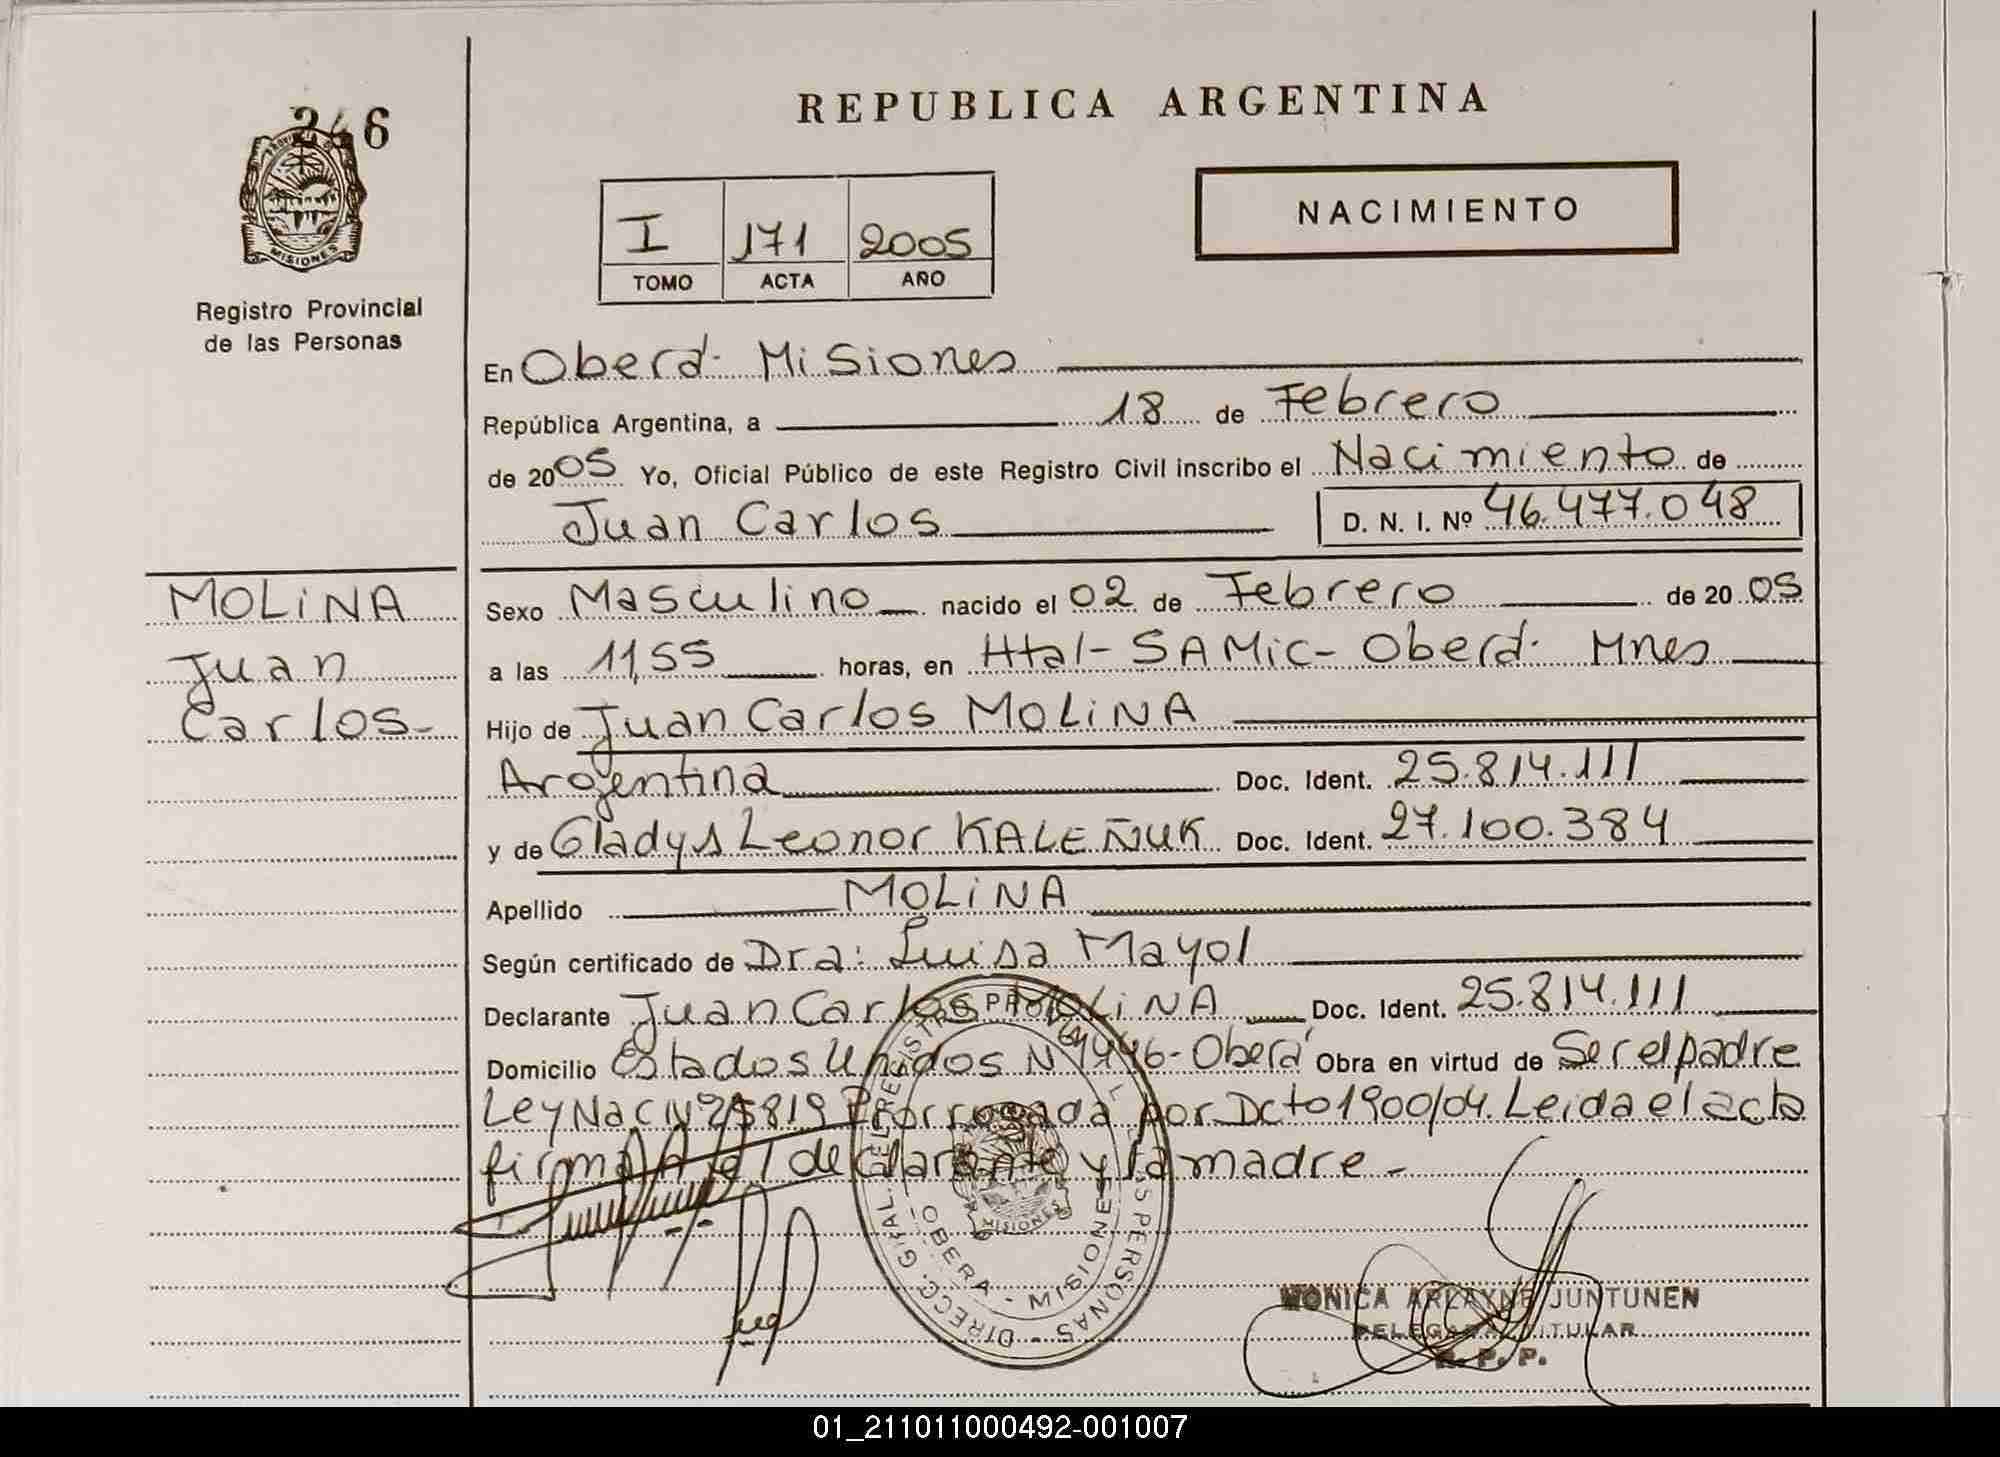 246
PROVINCIA D
MISIONES
Registro Provincial
de las Personas
MOLINA
Juan
Carlos-
REPUBLICA ARGENTINA
I 171 2005
TOMO ACTA AÑO
NACIMIENTO
En Oberá· Misiones
República Argentina, a 18 de Febrero
de 2005 Yo, Oficial Público de este Registro Civil inscribo el Nacimiento de
Juan Carlos D. N. I. Nº 46.477.048
Sexo Masculino nacido el 02 de Febrero de 2005
a las 11,55 horas, en Htal- SAMic- Oberá· Mnes
Hijo de Juan Carlos MOLINA
Argentina Doc. Ident. 25.814.111
y de Gladys Leonor KALEÑUK Doc. Ident. 27.100.384
Apellido MOLINA
Según certificado de Dra: Luisa Mayol
Declarante Juan Carlos MOLINA Doc. Ident. 25.814.111
Domicilio Estados Unidos Nº 1446- Oberá Obra en virtud de Ser el padre
Ley Nac Nº 25819 Prorrogada por Dcto 1900/04. Leida el acta
firman el declarante y la madre-
DIRECC. GRAL. DEL REGISTRO PROVINCIAL DE LAS PERSONAS -
OBERA - MISIONES
MISIONES
MONICA ARLAYNE JUNTUNEN
DELEGADA TITULAR
R. P. P.
01_211011000492-001007